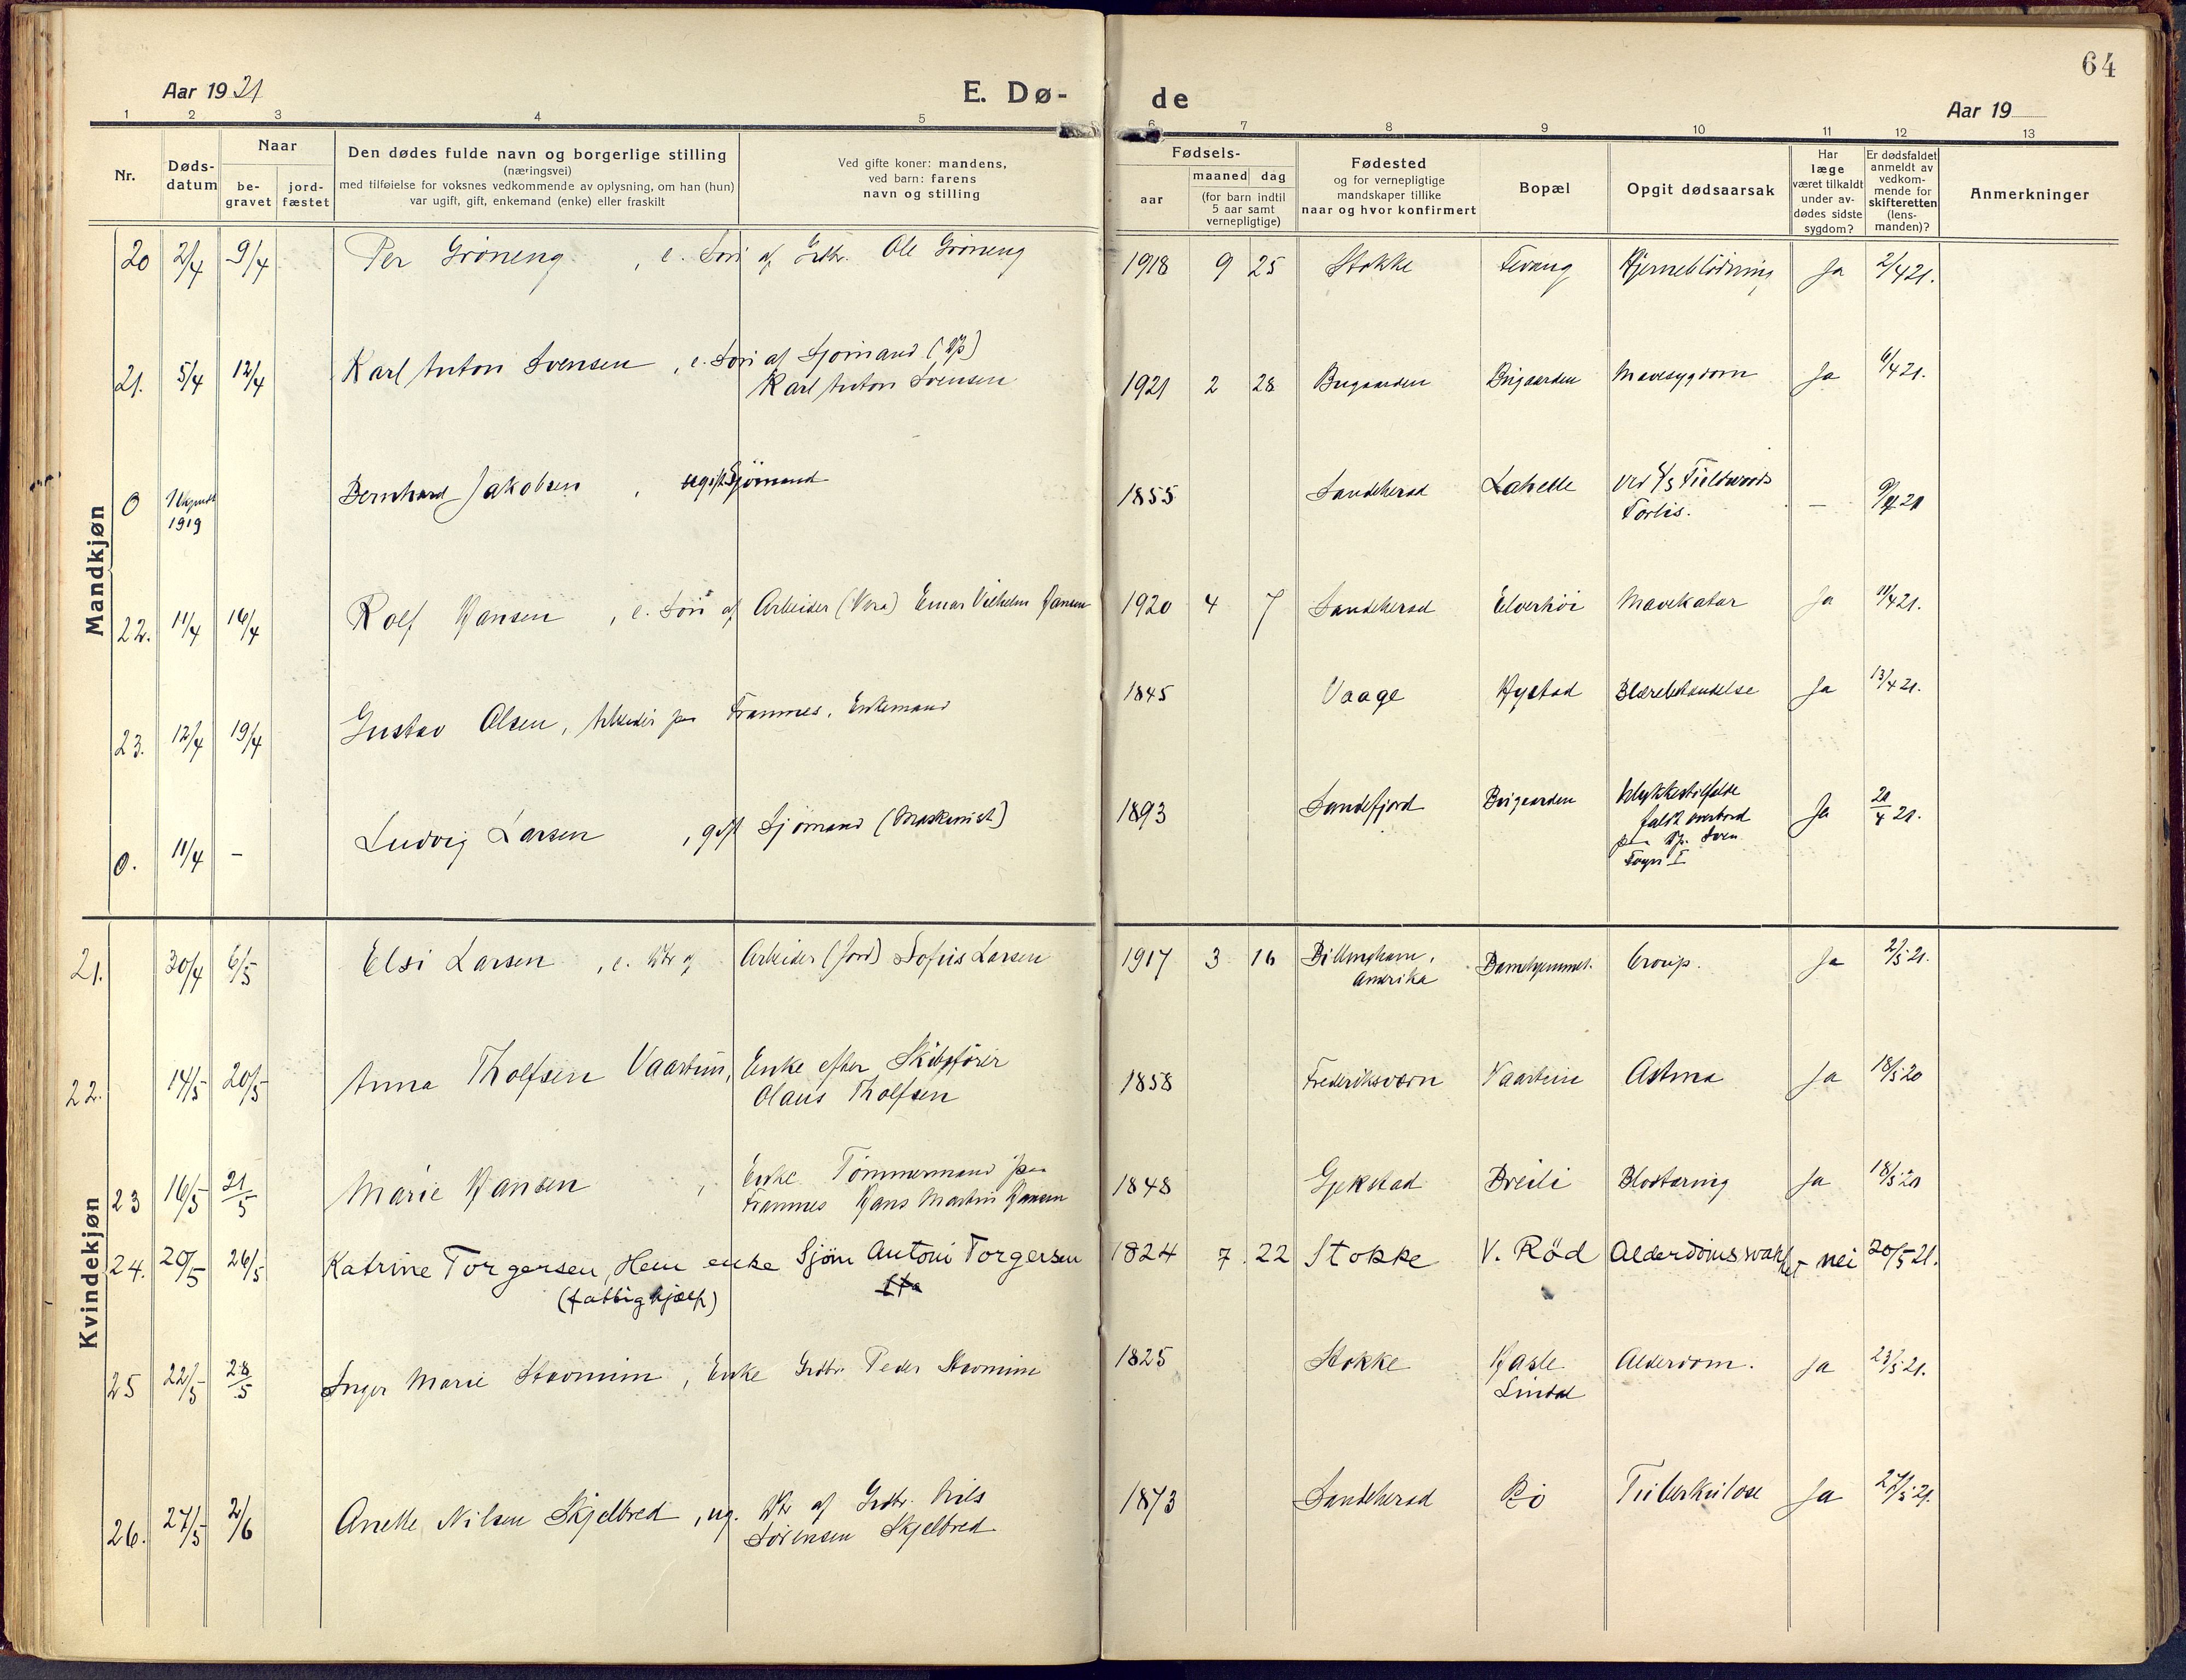 64
Aar 1921
E. Dø-
de
Aar 19
1 2 3 4 5 6 7 8 9 10 11 12 13
Nr.
Døds-
datum
Naar
be-
gravet
jord-
fæstet
Den dødes fulde navn og borgerlige stilling
(næringsvei)
med tilføielse for voksnes vedkommende av oplysning, om han (hun)
var ugift, gift, enkemand (enke) eller fraskilt
Ved gifte koner: mandens,
ved barn: farens
navn og stilling
Fødsels-
aar
maaned dag
(for barn indtil
5 aar samt
vernepligtige)
Fødested
og for vernepligtige
mandskaper tillike
naar og hvor konfirmert
Bopæl
Opgit dødsaarsak
Har
læge
været tilkaldt
under av-
dødes sidste
sygdom?
Er dødsfaldet
anmeldt av
vedkom-
mende for
skifteretten
(lens-
manden)?
Anmerkninger
Mandkjøn
20 2/4 9/4 Per Gröneng , e. Sön af Grdbr. Ole Gröneng 1918 9 25 Stokke Fevang Hjerneblödning Ja 2/4 21.
21. 5/4 12/4 Karl Anton Svensen , e. Sön af Sjömand
Karl Anton Svensen 1921 2 28 Bugaarden Bugaarden Mavesygdom Ja 6/4 21.
0 Ukjendt
1919 Bernhard Jakobsen , Sjömand 1855 Sandeherad Lahelle Ved
Forlis. – 21
22. 11/4 16/4 Rolf Hansen , e. Sön af Arbeider (Vera) Einar Vilhelm Hansen 1920 4 7 Sandeherad Elverhöi Mavekatar Ja 11/4 21.
23. 12/4 19/4 Gustav Olsen, Arbeider paa Framnes, Enkemand 1845 Vaage Hystad Blærebetændelse Ja 13/4 21.
0. 11/4 – Ludvig Larsen , gift Sjömand (Maskinist) 1893 Sandefjord Bugaarden Ulykkestilfælde
faldt overbord
paa Sven
Foyn I Ja 21/4 21.
Kvindekjøn
21. 30/4 6/5 Elsi Larsen , e. Dtr af Arbeider (Jord) Sofus Larsen 1917 3 16 Billingham,
Amerika Barnehjemmet. Croup. Ja 2/5 21.
22. 14/5 20/5 Anna Tholfsen Vaartun, Enke efter Skibsförer
Olaus Tholfsen 1858 Frederiksværn Vaartun Astma Ja 18/5 20
23 16/5 21/5 Marie Hansen , Enke Tömmermand paa
Framnes Hans Martin Hansen 1848 Gjekstad Breili Blodtæring Ja 18/5 21
24. 20/5 26/5 Katrine Torgersen, Hem enke Sjöm Antoni Torgersen
(fattighjælp) 1824 7 22 Stokke V. Röd Alderdomssvakhet nei 20/5 21.
25 22/5 28/5 Inger Marie Stavnum , Enke Grdbr. Peder Stavnum 1825 Stokke Hasle
Lindal Alderdom. Ja 23/5 21.
26. 27/5 2/6 Anette Nilsen Skjelbred , ug. Dtr af Grdbr. Nils
Sörensen Skjelbred 1873 Sandeherad Bö Tuberkulose Ja 27/5 21.